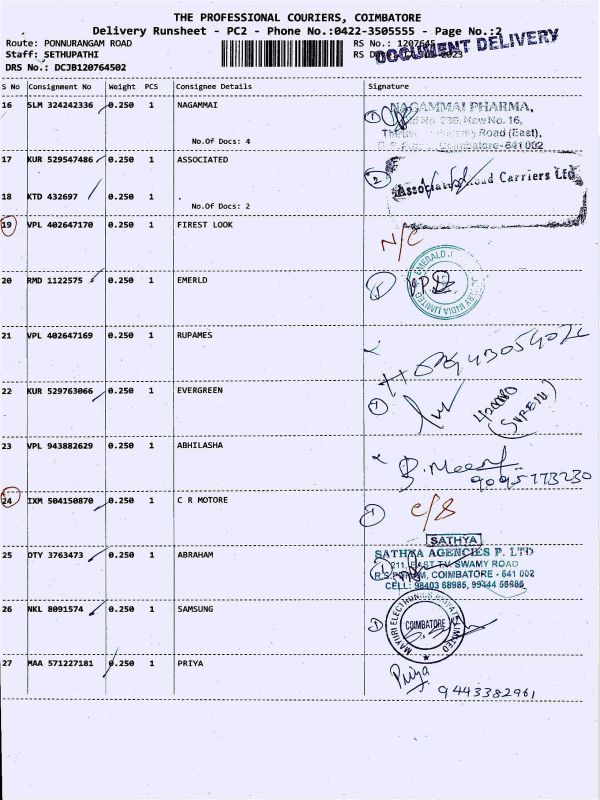 THE PROFESSIONAL COURIERS, COIMBATORE
Delivery Runsheet - PC2 - Phone No.:0422-3505555 - Page No.:2
Route: PONNURANGAM ROAD RS No.: 1207645
Staff: SETHUPATHI
DOCUMENT DELIVERY
DRS No.: DCJB120764502
S No Consignment No Weight PCS Consignee Details Signature
16 SLM 324242336 0.250 1 NAGAMMAI
No.Of Docs: 4
NAGAMMAI PHARMA,
New No. 16,
Road (East),
Coimbatore-641 002
17 KUR 529547486 0.250 1 ASSOCIATED
2
Associated Road Carriers Ltd
18 KTD 432697 0.250 1
No.Of Docs: 2
19 VPL 402647170 0.250 1 FIREST LOOK
N/C
20 RMD 1122575 0.250 1 EMERLD
EMERALD JEWELLERY INDIA LIMITED
21 VPL 402647169 0.250 1 RUPAMES
22 KUR 529763066 0.250 1 EVERGREEN
23 VPL 943882629 0.250 1 ABHILASHA
24 IXM 504150870 0.250 1 C R MOTORE
C/S
25 OTY 3763473 0.250 1 ABRAHAM
SATHYA
SATHYA AGENCIES P. LTD
211, EAST T.V. SWAMY ROAD
R.S.PURAM, COIMBATORE - 641 002
CELL: 98403 68985,
26 NKL 8091574 0.250 1 SAMSUNG
MAYURI ELECTRONICS PRIVATE LIMITED
COIMBATORE
27 MAA 571227181 0.250 1 PRIYA
Priya
9443382961